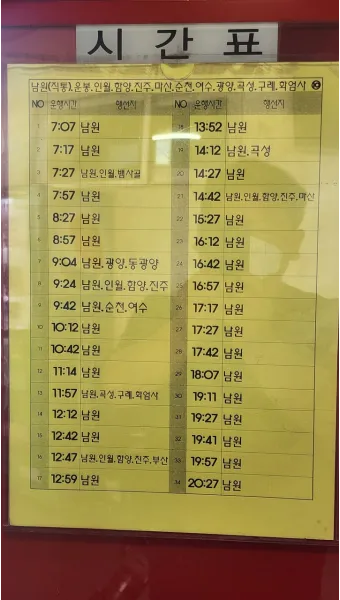 시간표
남원(직통).운봉.인월.함양.진주.마산.순천.여수.광양.곡성.구례.화엄사 ③
NO 운행시간 행선지 NO 운행시간 행선지
1 7:07 남원 18 13:52 남원
2 7:17 남원 19 14:12 남원.곡성
3 7:27 남원.인월.뱀사골 20 14:27 남원
4 7:57 남원 21 14:42 남원.인월.함양.진주.마산
5 8:27 남원 22 15:27 남원
6 8:57 남원 23 16:12 남원
7 9:04 남원.광양.동광양 24 16:42 남원
8 9:24 남원.인월.함양.진주 25 16:57 남원
9 9:42 남원.순천.여수 26 17:17 남원
10 10:12 남원 27 17:27 남원
11 10:42 남원 28 17:42 남원
12 11:14 남원 29 18:07 남원
13 11:57 남원.곡성.구례.화엄사 30 19:11 남원
14 12:12 남원 31 19:27 남원
15 12:42 남원 32 19:41 남원
16 12:47 남원.인월.함양.진주.부산 33 19:57 남원
17 12:59 남원 34 20:27 남원